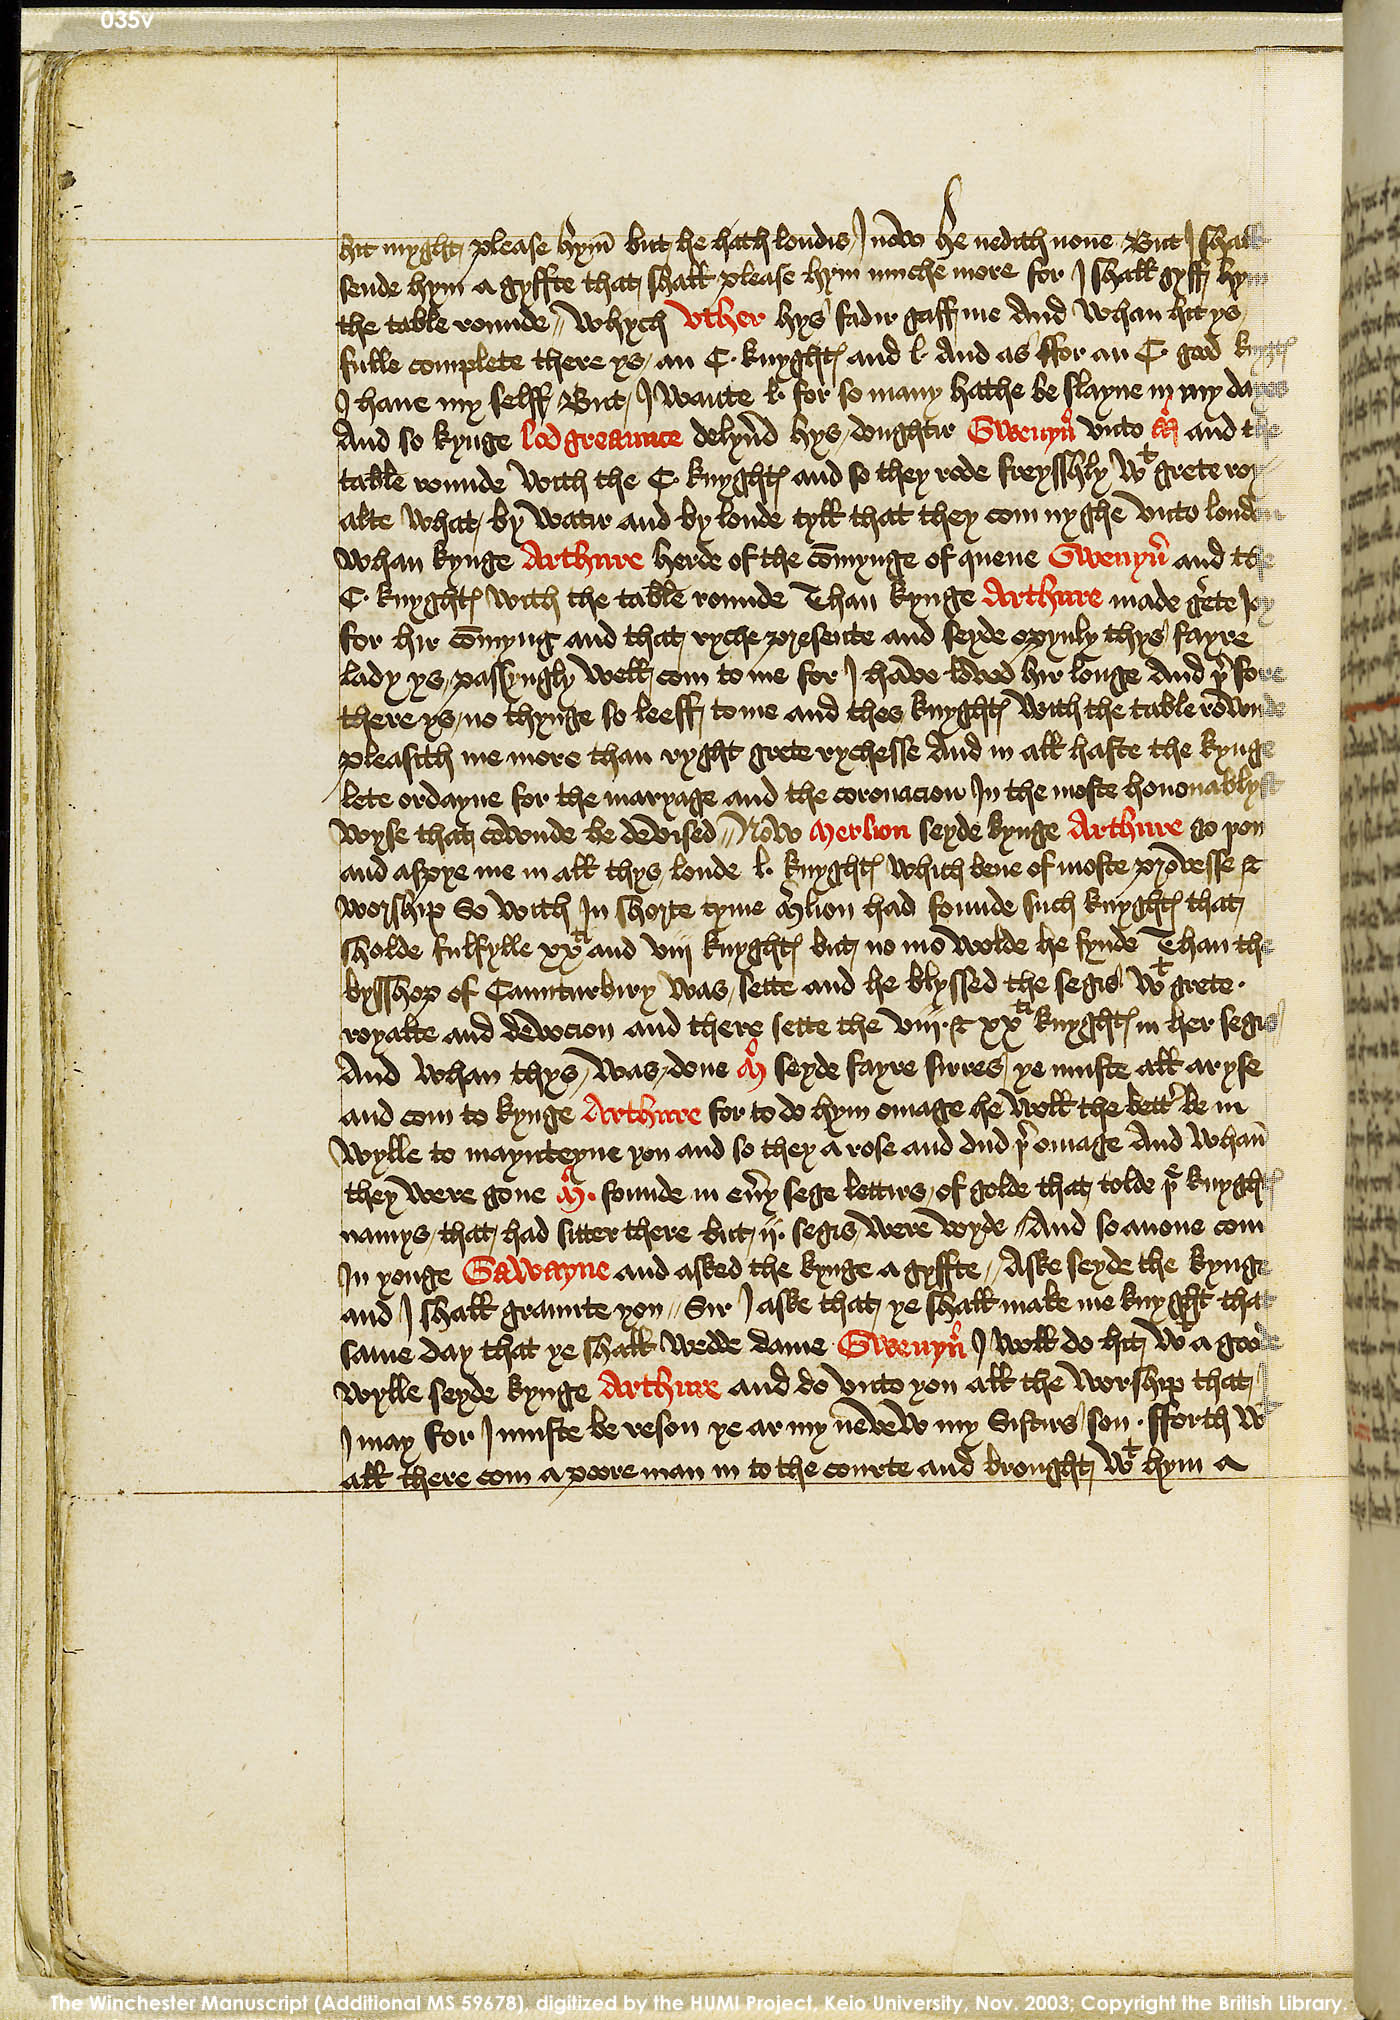 035v
hit myght please hym but he hath londis I now he nedith none But I shall
sende hym a gyffte that shall please hym muche more for I shall gyff hym
the table rounde // whych Vther hys fadir gaff me And whan hit ys
fulle complete there ys an C. knyghtes and l. And as ffor an C. good knyghtes
I haue my selff But I wante l. for so many hathe be slayne in my dayes
And so kynge lodgreaunce delyũd hys doughtir Gwenyũ vnto M̃ and the
table rounde with the C. knyghtes and so they rode freysshly wᵗ grete roy
alte what by watir and by londe tyll that they com nyghe vnto london
whan kynge Arthure herde of the cōmynge of quene Gwenyũ and the
C. knyghtes with the table rounde Than kynge Arthure made grete Joy
for hir cōmyng and that ryche presente and seyde opynly thys fayre
lady ys passyngly well com to me for I haue loved hir longe And þ̃fore
there ys no thynge so leeff to me and thes knyghtes with the table rownde
pleasith me more than ryght grete rychesse And in all haste the kynge
lete ordayne for the maryage and the coronacion In the moste honorablyst
wyse that cowude be devised // Now Merlion seyde kynge Arthure go you
and aspye me in all thys londe l. knyghtes which bene of moste prowesse &
worship So with In shorte tyme M̃lion had founde such knyghtes that
sholde fulfylle xxᵗⁱ and viij knyghtes but no mo wolde he fynde Than the
bysshop of Caunturbiry was sette and he blyssed the segis wᵗ grete
royalte and devocion and there sette the viij. & xxᵗⁱ knyghtes in her segis
And whan thys was done M̃ seyde fayre sirres ye muste all aryse
and com to kynge Arthure for to do hym omage he woll the bettir be in
wylle to maynteyne you and so they a rose and dud þ̃ omage And whan
they were gone M̃. founde in eũy sege lettirs of golde that tolde þ̃ knyghtes
namys that had sitten there but ij. segis were voyde // And so anone com
In yonge Gawayne and asked the kynge a gyffte // Aske seyde the kynge
and I shall graunte you // Sir I aske that ye shall make me knyght that
same day that ye shall wedde dame Gwenyũ I woll do hit wᵗ a goode
wylle seyde kynge Arthure and do vnto you all the worship that
I may for I muste be reson ye ar my nevew my Sistirs son . fforth wᵗ
all there com a poore man in to the courte and brought wᵗ hym a
The Winchester Manuscript (Additional MS 59678), digitized by the HUMI Project, Keio University, Nov. 2003; Copyright the British Library.